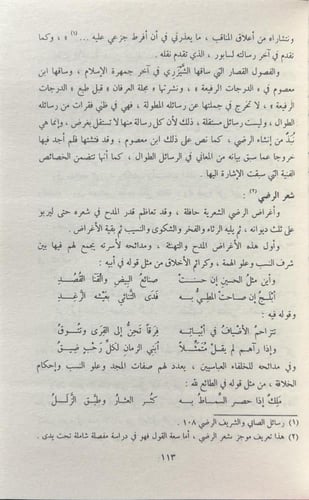 ونشاراه من أعلاق المناقب ، ما يعذرني في أن أفرط جزعي عليه ... (١) » ، وكما
تقدم في آخر رسالته لسابور ، الذي تقدم نقله .
والفصول القصار التي ساقها الشَّيْزَري في آخر جمهرة الإسلام ، وساقها ابن
معصوم في « الدرجات الرفيعة » ، ونشرتها « مجلة العرفان » قبل طبع « الدرجات
الرفيعة » ، لا تخرج في جملتها عن رسائله المطولة ، فهي في ظني فقرات من رسائله
الطوال ، وليست رسائل مستقلة ، ذلك لأن كل رسالة منها لا تستقل بغرض ، وإنما هي
نُبَذٌ من إنشاء الرضي ، كما نص على ذلك ابن معصوم . وقد فتشتها فلم أجد فيها
خروجا عما سبق بيانه من المعاني في الرسائل الطوال ، كما أنها تتضمن الخصائص
الفنية التي سبقت الإشارة إليها .
شعر الرضي (٢) :
وأغراض الرضي الشعرية حافلة ، وقد تعاظم قدر المدح في شعره حتى ليربو
على ثلث ديوانه ، ثم يليه الرثاء والفخر والشكوى والنسيب ثم بقية الأغراض .
وأول هذه الأغراض المدح والتهنئة ، ومدائحه لأسرته يجمع لهم فيها بين
شرف النسب وعلو الهمة ، وكرائم الأخلاق من مثل قوله في أبيه :
وأين مثلُ الحسين إن حسنتْ صنائعُ البيضِ والقنا القُصُدِ
أبلجُ إن صاحت المطِيُّ به فَدَى الثنائي بعَيْشه الرَّغَدِ
وقوله فيه :
تتزاحم الأضيافُ في أبياته فِرَقاً تحِنُّ إلى القِرَى وتَشَوَّقُ
وإذا رآهم لم يقلْ مُتَمثِّلاً أبنى الزمانِ لكلِّ رَحْبٍ ضِيقُ
وفي مدائحه للخلفاء العباسيين ، يعدد لهم صفات المجد وعلو النسب وإحكام
الخلافة ، من مثل قوله في الطائع لله :
مَلِكٌ إذا حصر السِّماطُ به كثُر العثارُ وطبَّق الزَّلَلُ
(١) رسائل الصابي والشريف الرضي ١٠٨ .
(٢) هذا تعريف موجز بشعر الرضي ، أما سعة القول فهو في دراسة مفصلة شاملة تحت يدى .
١١٣